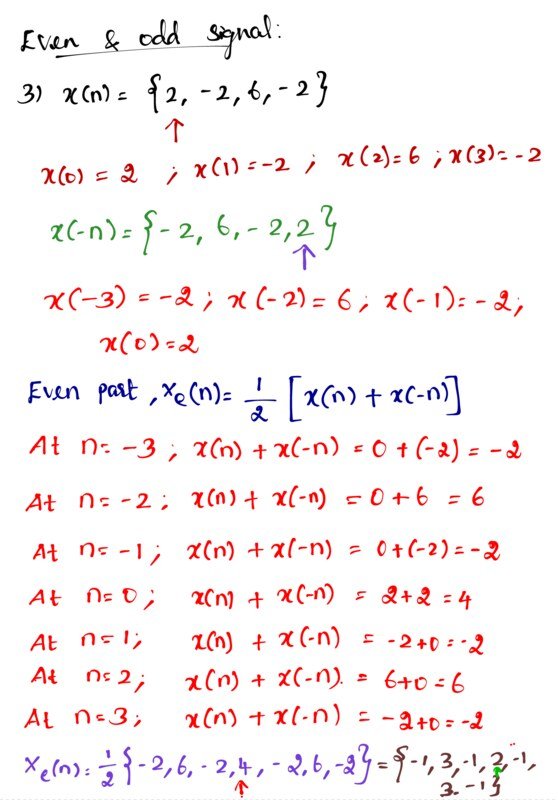 Even & odd signal:
3) x(n) = {2, -2, 6, -2}
↑
x(0) = 2 ; x(1) = -2 ; x(2) = 6 ; x(3) = -2
x(-n) = {-2, 6, -2, 2}
↑
x(-3) = -2 ; x(-2) = 6 ; x(-1) = -2 ;
x(0) = 2
Even part, xe(n) = 1/2 [x(n) + x(-n)]
At n = -3 ; x(n) + x(-n) = 0 + (-2) = -2
At n = -2 ; x(n) + x(-n) = 0 + 6 = 6
At n = -1 ; x(n) + x(-n) = 0 + (-2) = -2
At n = 0 ; x(n) + x(-n) = 2 + 2 = 4
At n = 1 ; x(n) + x(-n) = -2 + 0 = -2
At n = 2 ; x(n) + x(-n) = 6 + 0 = 6
At n = 3 ; x(n) + x(-n) = -2 + 0 = -2
xe(n) = 1/2 {-2, 6, -2, 4, -2, 6, -2} = {-1, 3, -1, 2, -1,
↑ 3. -1}